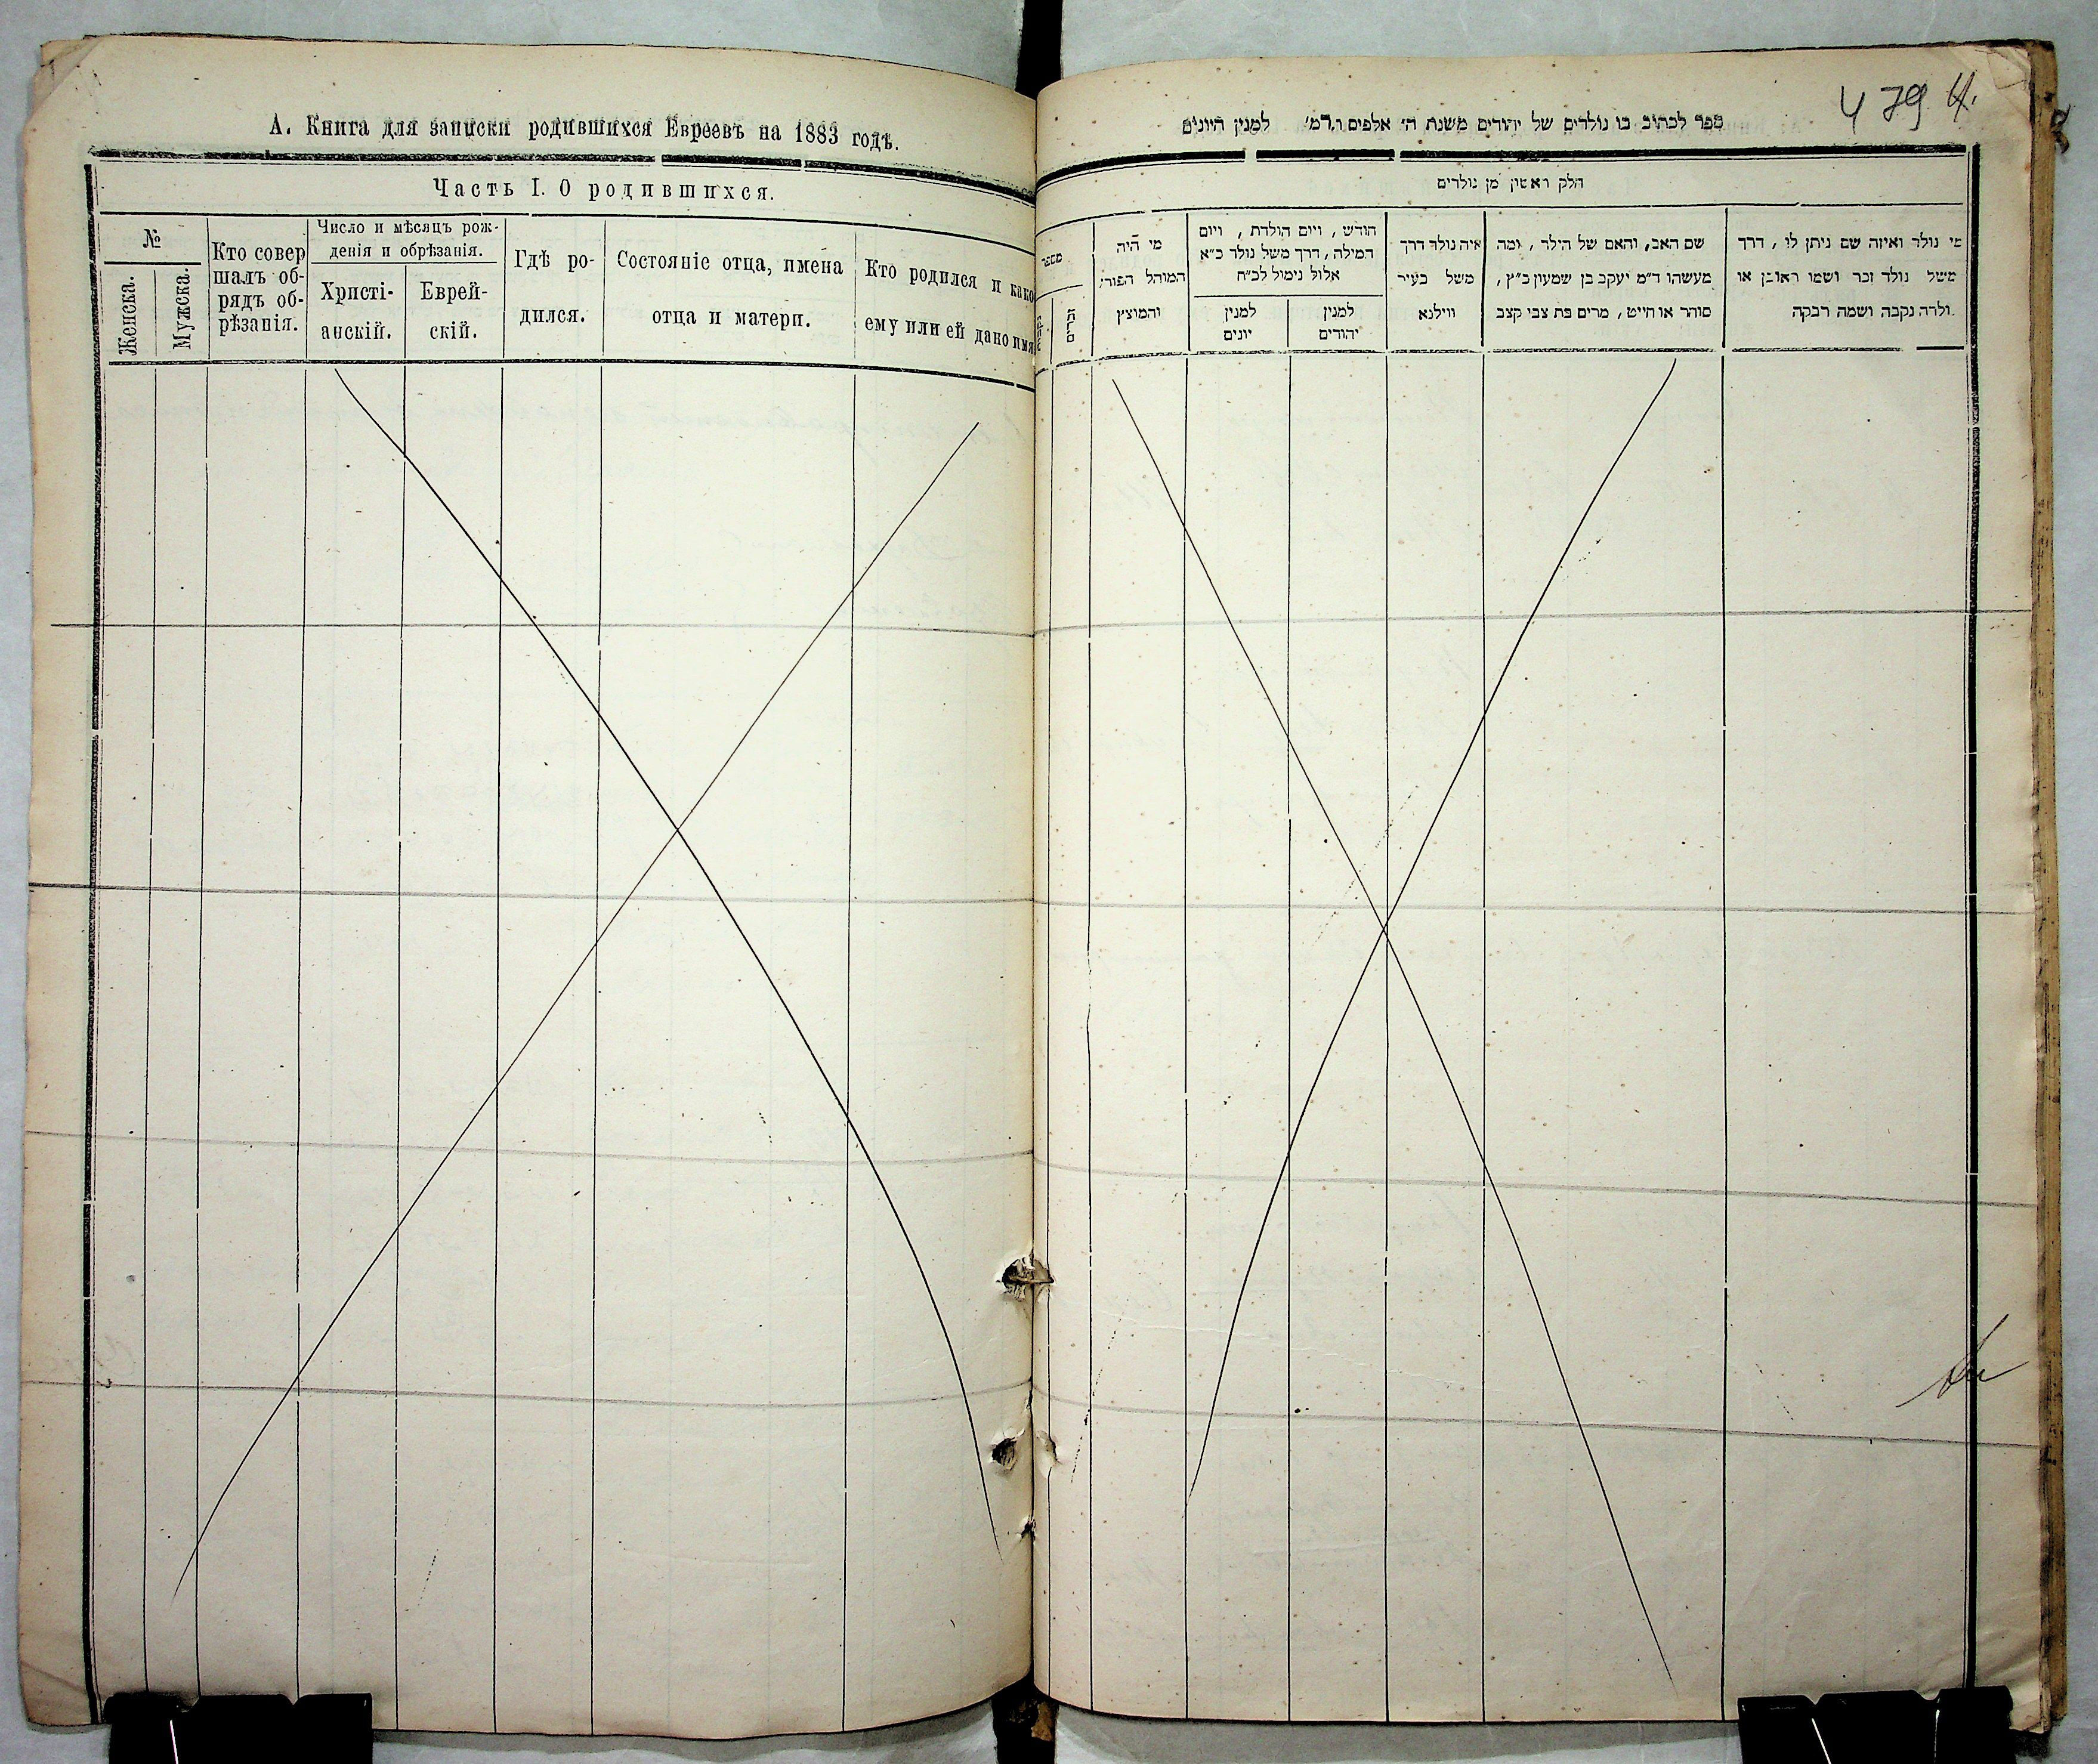 А. Книга для записки родившихся Евреевъ на 1883 годъ.
Часть I. О родившихся.
№
Женска.
Мужска.
Кто совер
шалъ об-
рядъ об-
рѣзанія.
Число и мѣсяцъ рож-
денія и обрѣзанія.
Христі-
анскій.
Еврей-
скій.
Гдѣ ро-
дился.
Состояніе отца, имена
отца и матери.
Кто родился и како
ему или ей дано имя
479 4.
ספר לכתוב בו נולדים של יהודים משנת ה׳ אלפים ו׳רמ׳ למנין היונים
חלק ראשון מן נולדים
מספר
זכרים
מי היה
המוהל הפורע
והמוצץ
חודש, ויום הולדת, ויום
המילה, דרך משל נולד כ״א
אלול נימול לכ״ח
למנין
יונים
למנין
יהודים
איה נולד דרך
משל בעיר
ווילנא
שם האב, והאם של הילד, ומה
מעשהו ד״מ יעקב בן שמעון כ״ץ,
סוהר או חייט, מרים בת צבי קצב
מי נולד ואיזה שם ניתן לו, דרך
משל נולד זכר ושמו ראובן או
ולדה נקבה ושמה רבקה